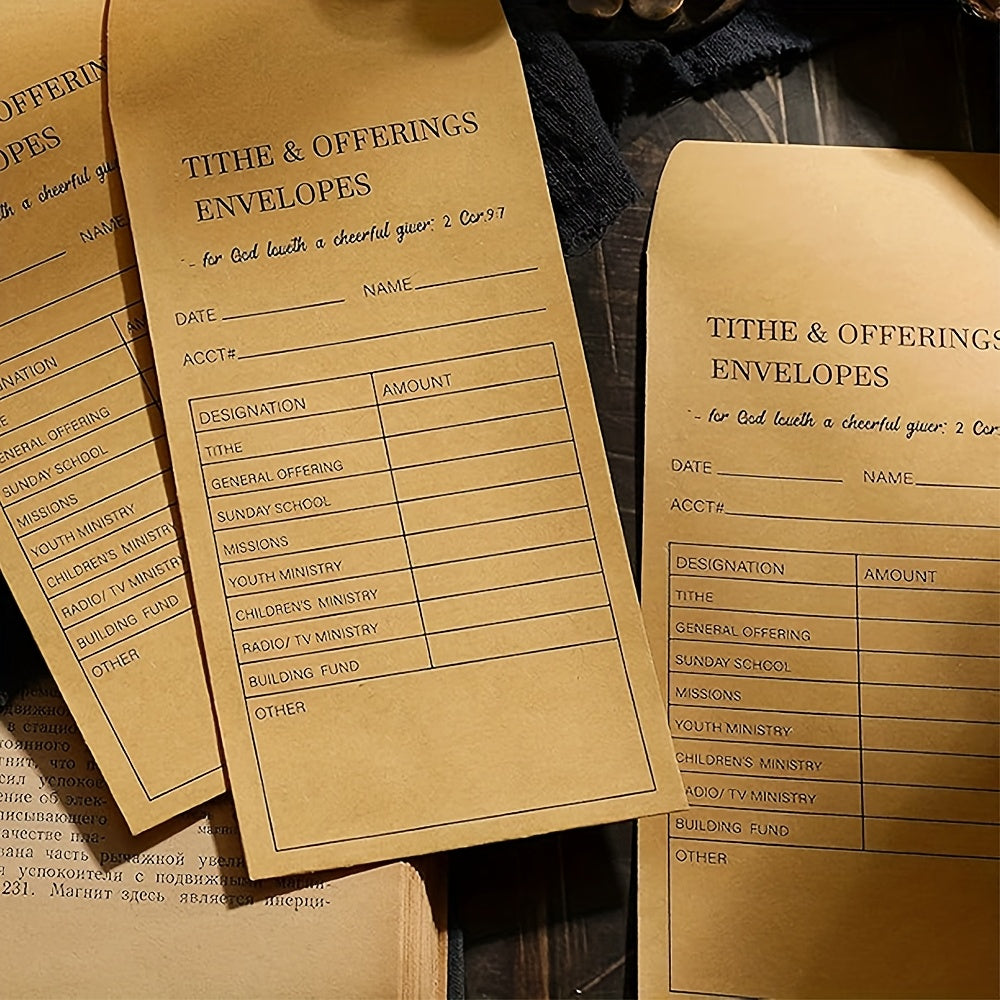 OFFERIN
OPES
th a cheerful giv
NAME
AN
NATION
E
ENERAL OFFERING
SUNDAY SCHOOL
MISSIONS
YOUTH MINISTRY
CHILDREN'S MINISTRY
RADIO/ TV MINISTR
BUILDING FUND
OTHER
TITHE & OFFERINGS
ENVELOPES
for God loveth a cheerful giver: 2 Cor.9:7
DATE NAME
ACCT#
DESIGNATION AMOUNT
TITHE
GENERAL OFFERING
SUNDAY SCHOOL
MISSIONS
YOUTH MINISTRY
CHILDREN'S MINISTRY
RADIO/ TV MINISTRY
BUILDING FUND
OTHER
TITHE & OFFERINGS
ENVELOPES
for God loveth a cheerful giver: 2 Cor
DATE NAME
ACCT#
DESIGNATION AMOUNT
TITHE
GENERAL OFFERING
SUNDAY SCHOOL
MISSIONS
YOUTH MINISTRY
CHILDREN'S MINISTRY
RADIO/ TV MINISTRY
BUILDING FUND
OTHER
в стацио
тоянного
гнит, что п
сил успокое
ение об элек-
писывающего
качестве пла- магн
вана часть рычажной увели
я успокоители с подвижным магни-
231. Магнит здесь является инерци-